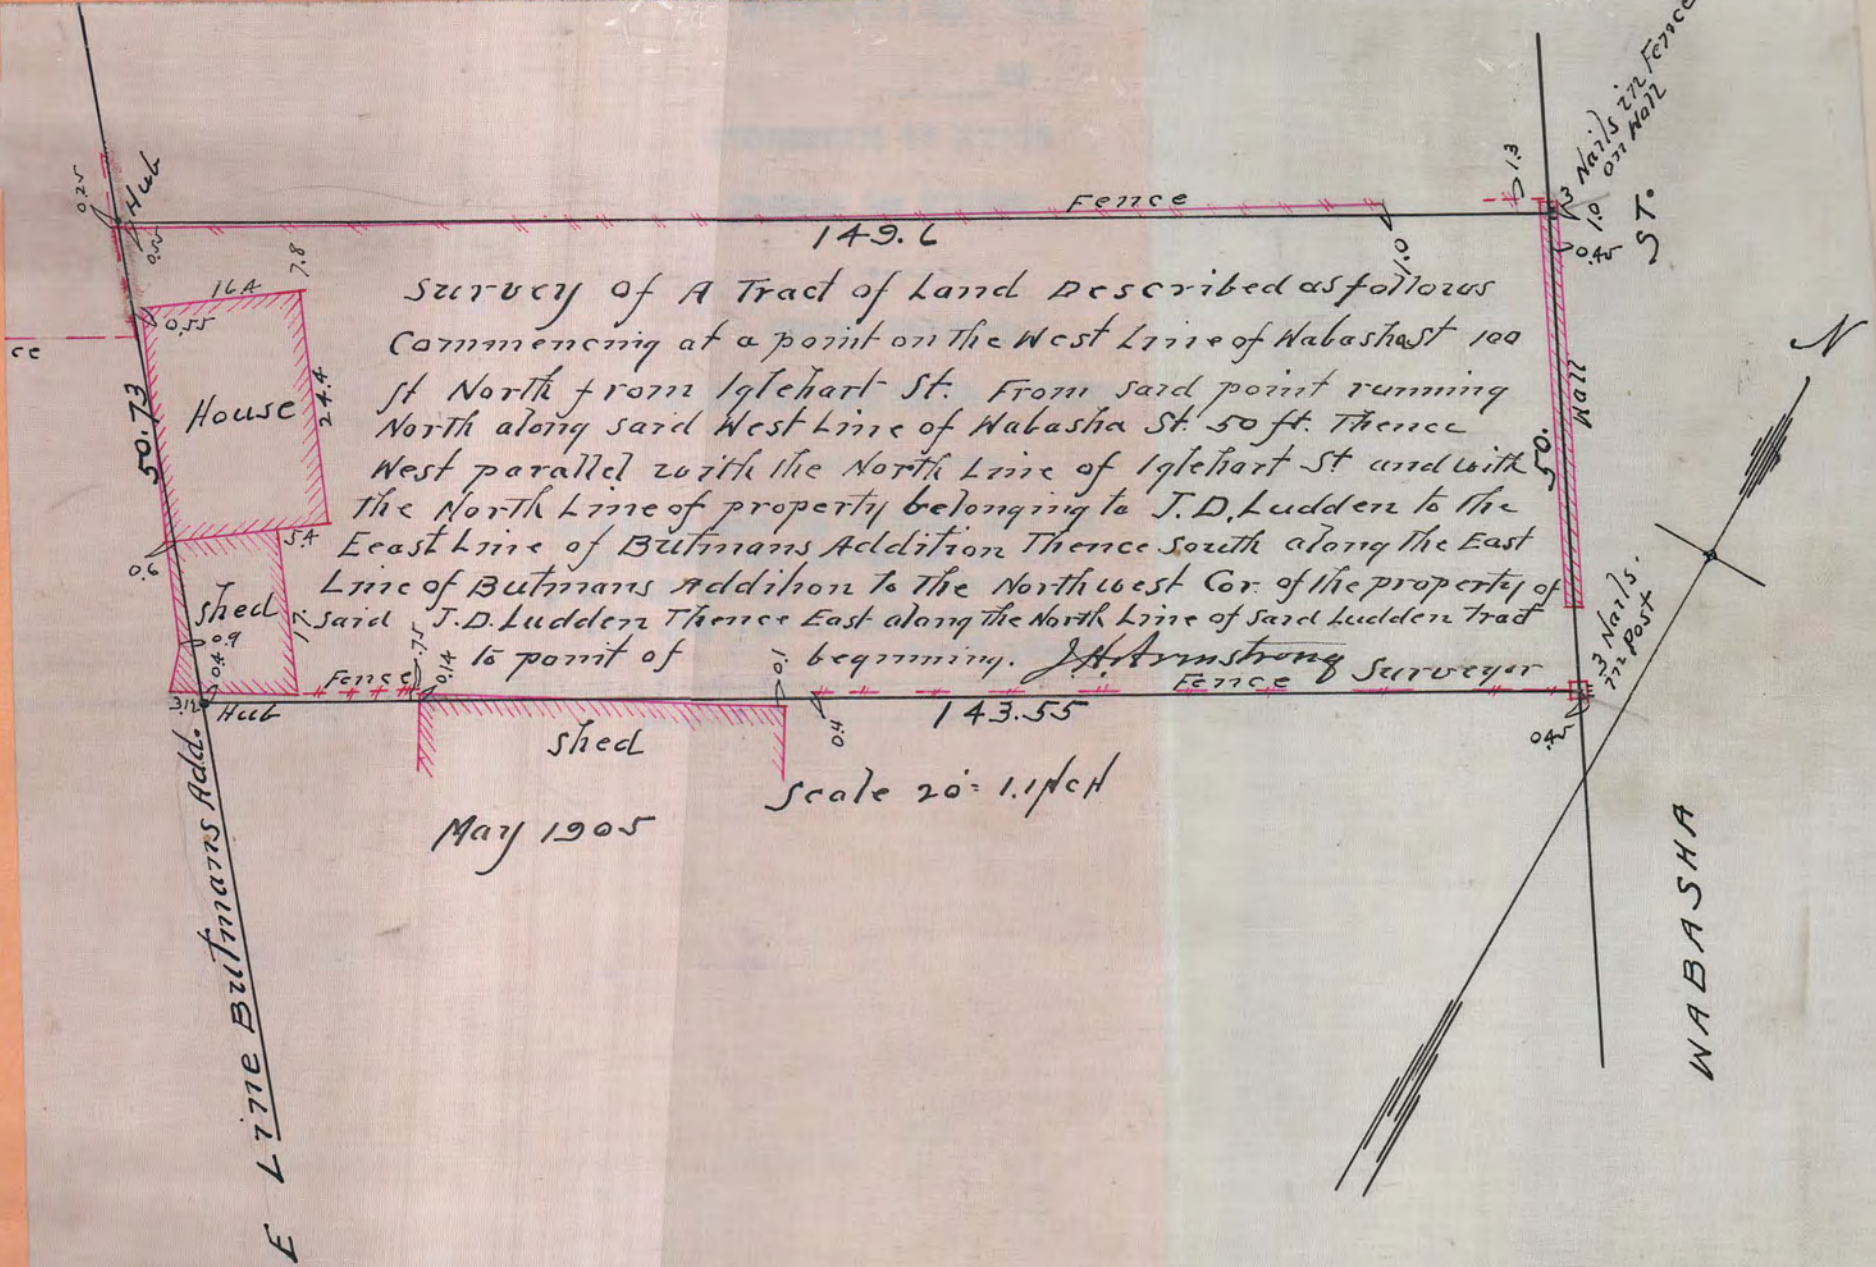 3 Nails in Fence
1.0 on Wall
ST.
0.25
Hub
0.55
1.3
Fence
149.6
1.0
0.45
N
16.4
7.8
0.55
ce
50.73
House
24.4
Survey of A Tract of Land Described as follows
Commencing at a point on the West Line of Wabasha St 100
ft North from Iglehart St. From said point running
North along said West Line of Wabasha St. 50 ft. Thence
West parallel with the North Line of Iglehart St and with
the North Line of property belonging to J.D. Ludden to the
Eeast Line of Butmans Addition Thence South along the East
Line of Butmans Addition to the Northwest Cor. of the property of
said J.D. Ludden Thence East along the North Line of said Ludden Tract
to point of beginning. J.H. Armstrong Surveyor
Wall
50.
5.4
0.6
shed
17.
0.9
0.4
3.12
Hub
Fence
.75
0.14
0.1
Fence
3 Nails.
in Post
0.45
0.4
143.55
shed
Scale 20' = 1.INCH
May 1905
E Line Butmans Add.
WABASHA